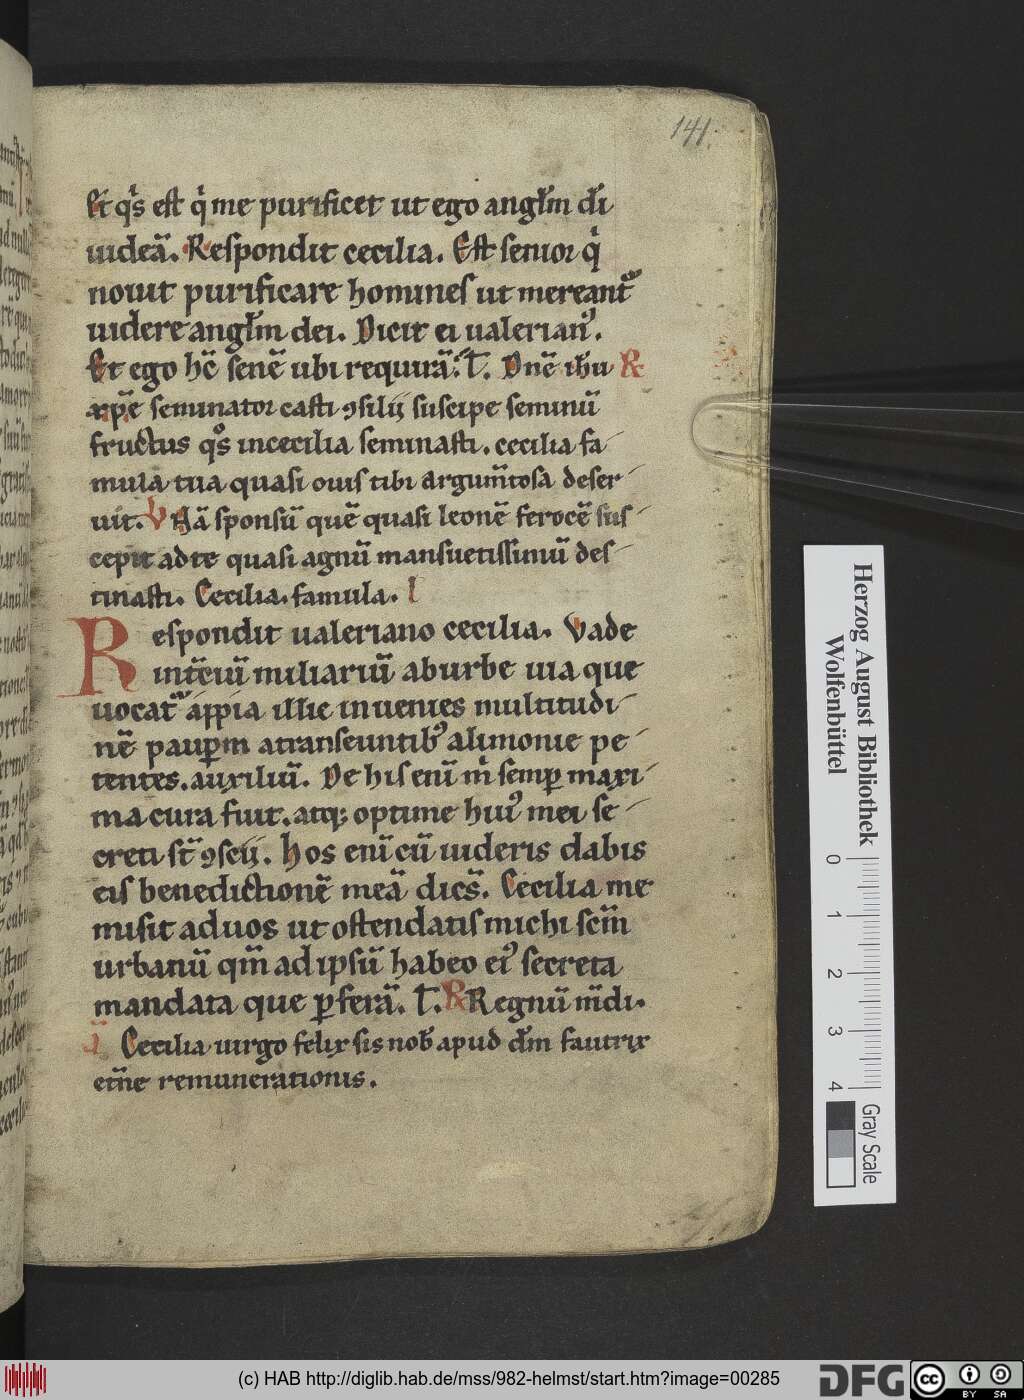 141.
Et q̇s est q̇ me purificet ut ego angl̄m dī
uideā. Respondit cecilia. Est senior q̇
nouit purificare homines ut mereant᷑
uidere angl̄m dei. Dicit ei ualerian᷒.
Et ego hc̄ senē ubi requirā. T̄. Dn̄e ih̄u R̷
xp̄e seminator casti ꝯsilij suscipe seminū
fructus qͦs in cecilia seminasti. cecilia fa-
mula tua quasi ouis tibi argum̄tosa deser-
uit. V Nā sponsū quē quasi leonē ferocē sus-
cepit ad te quasi agnū mansuetissimū des-
tinasti. Cecilia. famula. l
Respondit ualeriano cecilia. Vade
in tc̄iū miliariū ab urbe uia que
uocat᷑ appia illic inuenies multitudi-
nē paup̱m a transeuntib᷒ alimonie pe-
tentes. auxiliū. De his enī m̄ semp̱ maxi-
ma cura fuit. atq; optime hui᷒ mei se-
creti st̄ ꝯscij. Hos enī cū uideris dabis
eis benedictionē meā dicēs. Cecilia me
misit ad uos ut ostendatis michi sc̄m
urbanū qm̄ ad ipsū habeo ei᷒ secreta
mandata que p̱ferā. T̄. R̷ Regnū m̄di.
ā Cecilia uirgo felix sis nob̄ apud dm̄ fautrix
etn̄e remunerationis.
Herzog August Bibliothek
Wolfenbüttel
0 1 2 3 4
Gray Scale
(c) HAB http://diglib.hab.de/mss/982-helmst/start.htm?image=00285
DFG
cc BY SA